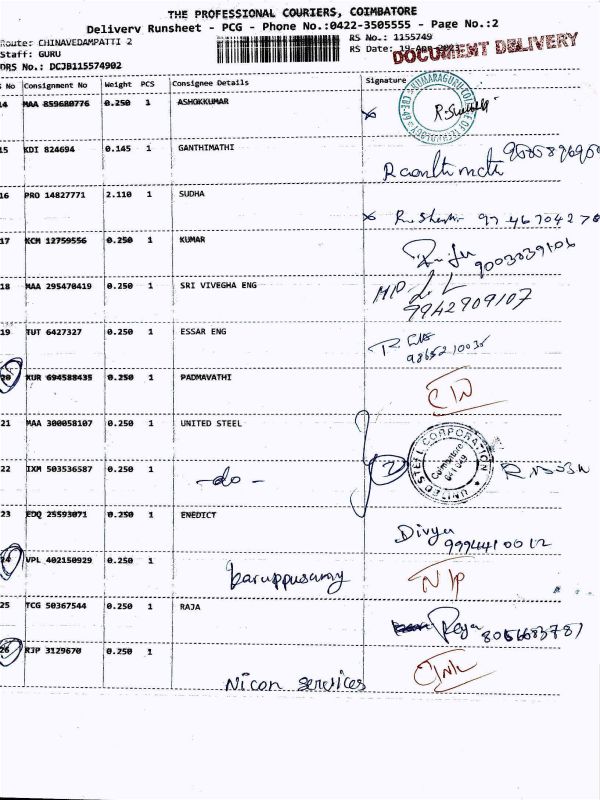 THE PROFESSIONAL COURIERS, COIMBATORE
Delivery Runsheet - PCG - Phone No.:0422-3505555 - Page No.:2
Route: CHINAVEDAMPATTI 2
RS No.: 1155749
Staff: GURU
RS Date: 19-Apr
DOCUMENT DELIVERY
DRS No.: DCJB115574902
S No Consignment No Weight PCS Consignee Details Signature
14 MAA 859680776 0.250 1 ASHOKKUMAR
15 KDI 824694 0.145 1 GANTHIMATHI
16 PRO 14827771 2.110 1 SUDHA
17 KCM 12759556 0.250 1 KUMAR 9003039106
18 MAA 295470419 0.250 1 SRI VIVEGHA ENG
9942909107
19 TUT 6427327 0.250 1 ESSAR ENG
20 KUR 694588435 0.250 1 PADMAVATHI
21 MAA 300058107 0.250 1 UNITED STEEL
UNITED STEEL CORPORATION
Coimbatore
641 049
22 IXM 503536587 0.250 1 -do- 2
23 EDQ 25593071 0.250 1 ENEDICT Divya
9994410012
24 VPL 402150929 0.250 1
Karuppusamy
25 TCG 50367544 0.250 1 RAJA Raja 8056683781
26 RJP 3129670 0.250 1
Nicon services